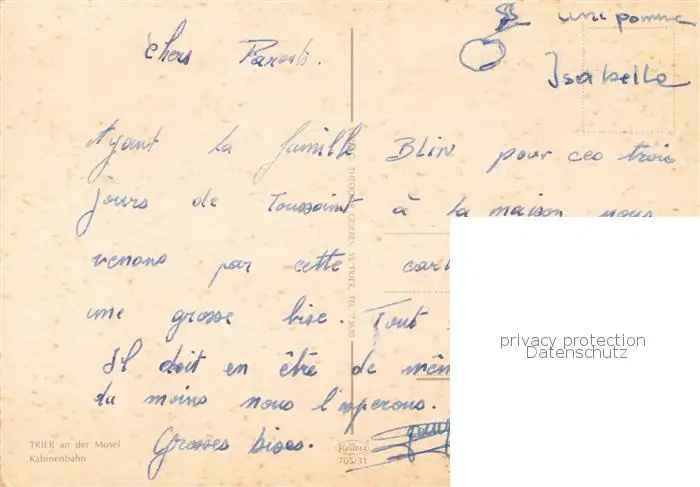 une pomme
Isabelle
Chers Parents.
Ayant la famille BLIN pour ces trois
jours de Toussaint à la maison nous
venons par cette
une grosse bise. Tout
Il doit en être de
du moins nous l'esperons.
Grosses bises.
TRIER an der Mosel
Kabinenbahn
KRÜGER
705/31
privacy protection
Datenschutz